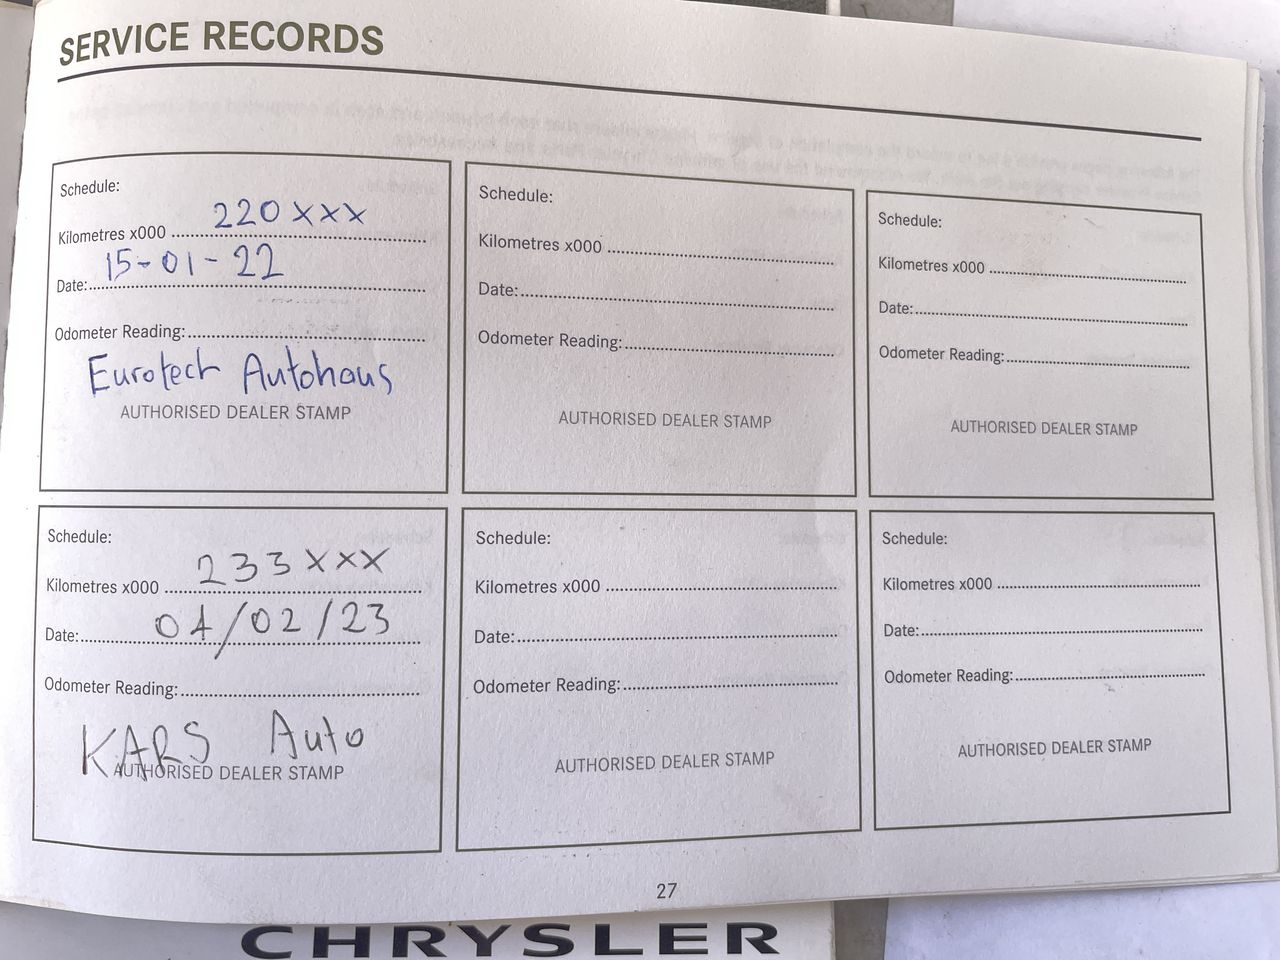 SERVICE RECORDS
Schedule:
Kilometres x000 220xxx
Date: 15-01-22
Odometer Reading:
Eurotech Autohaus
AUTHORISED DEALER STAMP
Schedule:
Kilometres x000
Date:
Odometer Reading:
AUTHORISED DEALER STAMP
Schedule:
Kilometres x000
Date:
Odometer Reading:
AUTHORISED DEALER STAMP
Schedule:
Kilometres x000 233xxx
Date: 01/02/23
Odometer Reading:
KARS Auto
AUTHORISED DEALER STAMP
Schedule:
Kilometres x000
Date:
Odometer Reading:
AUTHORISED DEALER STAMP
Schedule:
Kilometres x000
Date:
Odometer Reading:
AUTHORISED DEALER STAMP
27
CHRYSLER